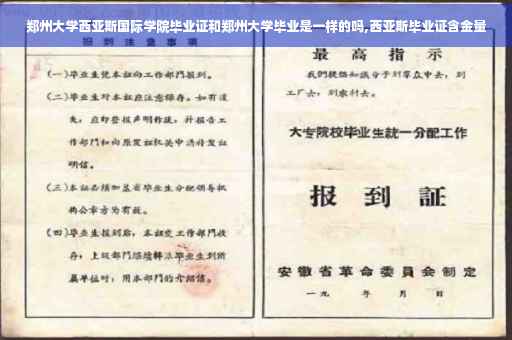 郑州大学西亚斯国际学院毕业证和郑州大学毕业是一样的吗,西亚斯毕业证含金量
报到注意事项
(一)毕业生凭本证向工作部门报到。
(二)毕业生对本证应注意保存。如有遗
失,应即登报声明作废,并报告工
作部门和向原发证机关申请补发证
明信。
(三)本证必须加盖省毕业生分配领导机
构公章方为有效。
(四)毕业生报到后,本证交工作部门收
存,上级部门继续转派毕业生到所
属单位时,用本部门的介绍信。
最高指示
我们提倡知识分子到羣众中去,到
工厂去,到农村去。
大专院校毕业生统一分配工作
报到证
安徽省革命委員会制定
一九 年 月 日